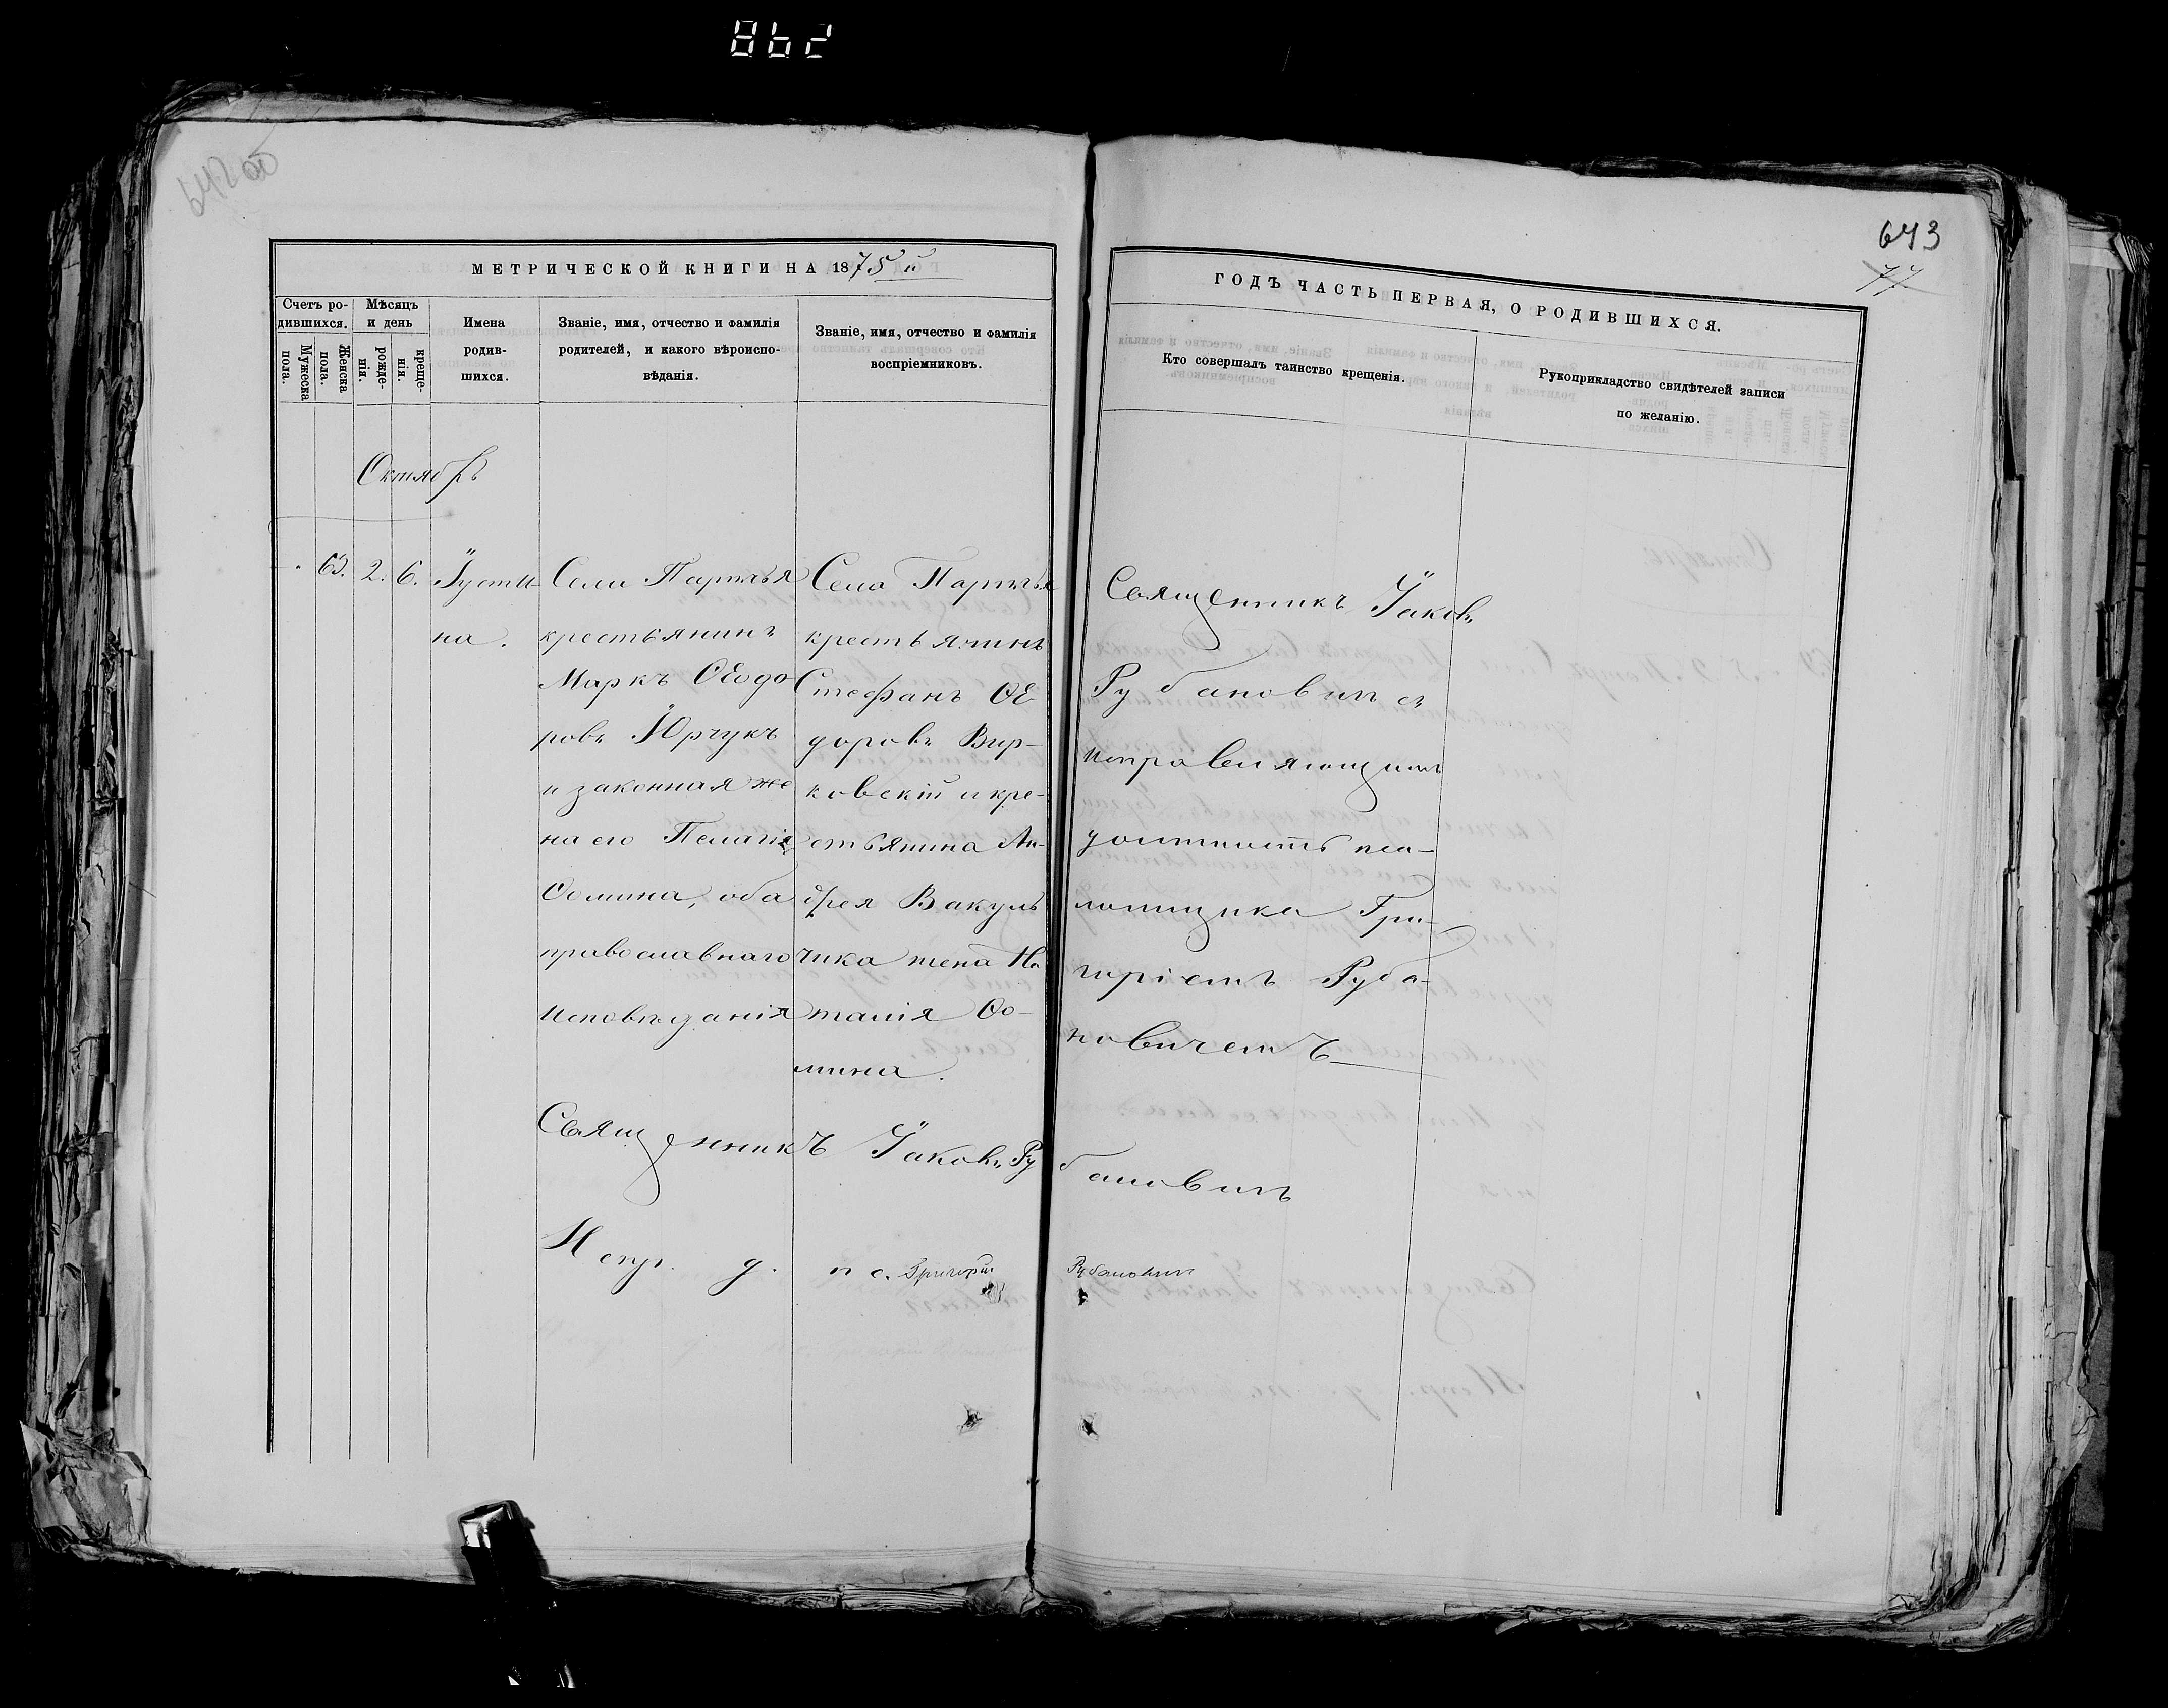 862
642 об
643
77
МЕТРИЧЕСКОЙ КНИГИ НА 1875й
ГОДЪ ЧАСТЬ ПЕРВАЯ, О РОДИВШИХСЯ.
Счетъ ро-
дившихся.
Мужеска
пола.
Женска
пола.
Мѣсяцъ
и день
рожде-
нія.
креще-
нія.
Имена
родив-
шихся.
Званіе, имя, отчество и фамилія
родителей, и какого вѣроиспо-
вѣданія.
Званіе, имя, отчество и фамилія
воспріемниковъ.
Кто совершалъ таинство крещенія.
Рукоприкладство свидѣтелей записи
по желанію.
Октябрь
2. 6.
Іусти-
на.
Села
крестьянинъ
Маркъ Ѳеодо-
ровъ Юрчукъ
и законная же
на его Пелагія
Ѳомина, оба
православнаго
исповѣданія
Села
крестьянинъ
Стефанъ Ѳе
доровъ Вир-
ковскій и кре-
стьянина Ан-
дрея Вакуль
чика жена На
талія Ѳо-
мина.
Священникъ Іаковъ
Рубановичъ съ
исправляющимъ
должность пса-
ломщика Гри-
горіемъ Руба-
новичемъ
Священникъ Іаковъ Рубановичъ
Испр. д. п с. Григорій Рубановичъ